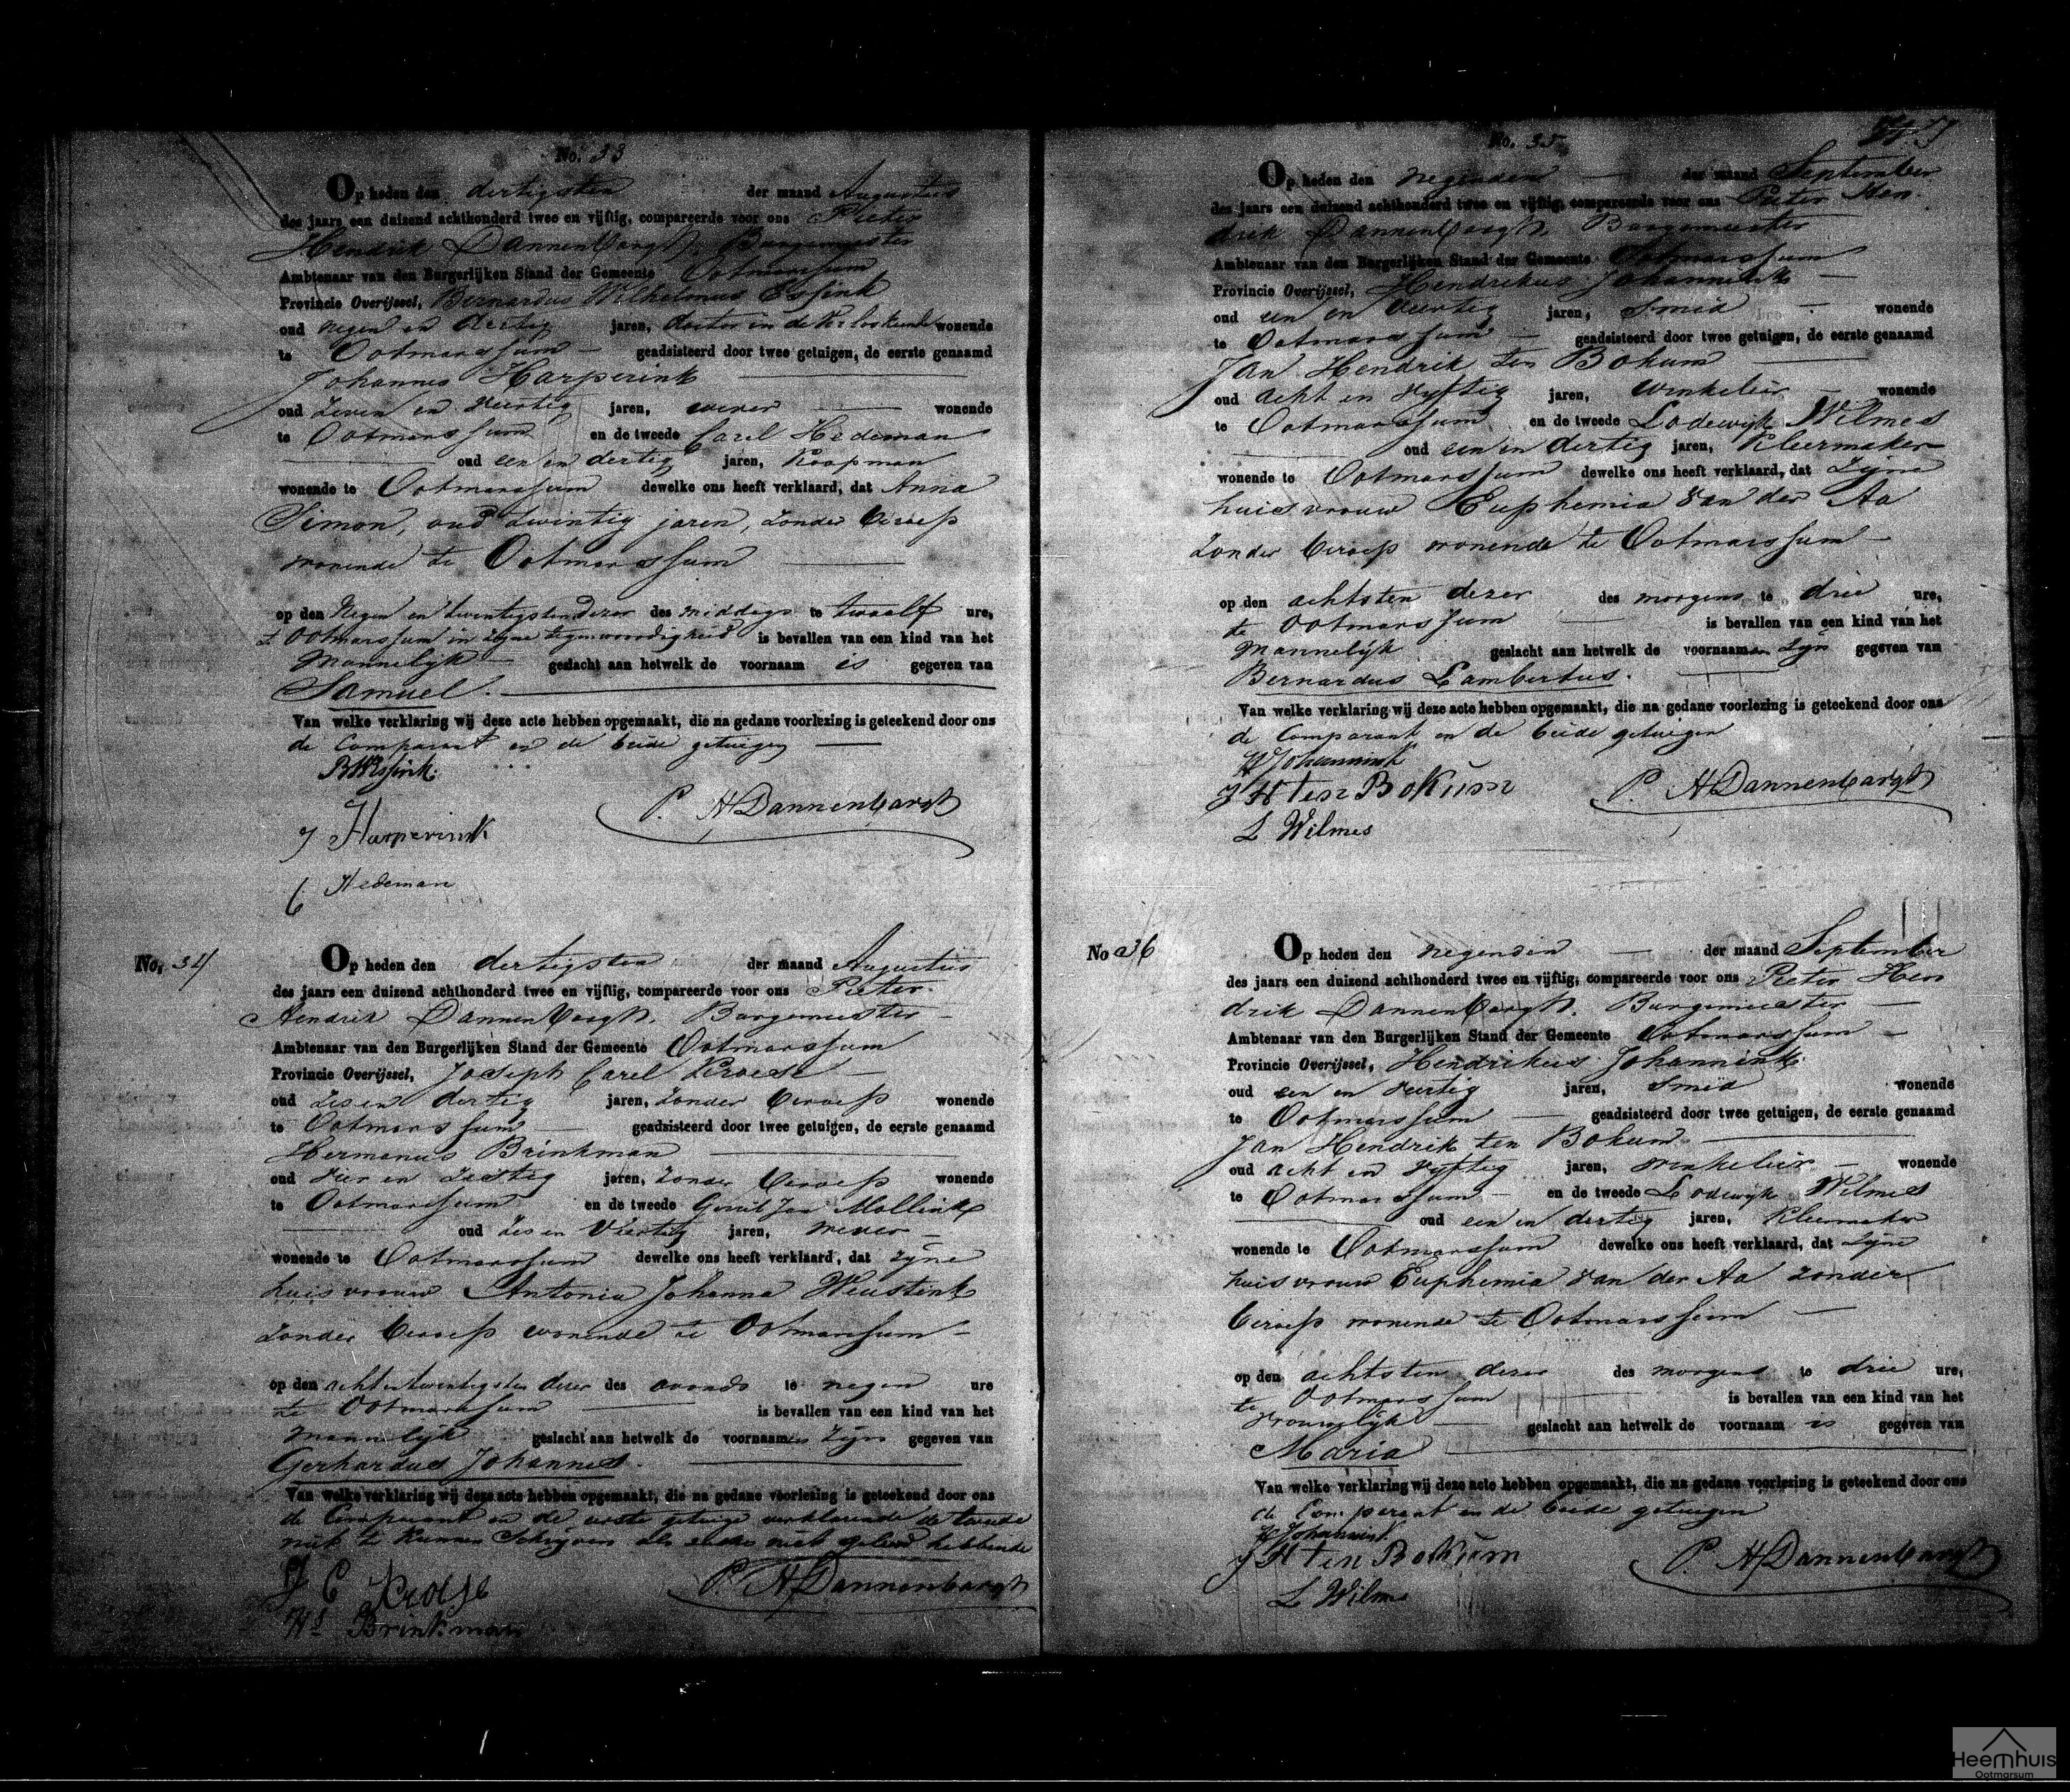 No. 33
Op heden den dertigsten der maand Augustus
des jaars een duizend achthonderd twee en vijftig, compareerde voor ons Pieter
Hendrik Dannenbargh, Burgemeester
Ambtenaar van den Burgerlijken Stand der Gemeente Ootmarssum
Provincie Overijssel, Bernardus Wilhelmus Essink
oud negen en dertig jaren, doctor in de Verloskunde wonende
te Ootmarssum — geadsisteerd door twee getuigen, de eerste genaamd
Johannes Harperink
oud zeven en veertig jaren, wever wonende
te Ootmarssum en de tweede Carel Hedeman
oud een en dertig jaren, Koopman
wonende te Ootmarssum dewelke ons heeft verklaard, dat Anna
Simon, oud twintig jaren, zonder beroep
wonende te Ootmarssum
op den negen en twintigsten dezer des middags te twaalf ure,
te Ootmarssum in zyne tegenwoordigheid is bevallen van een kind van het
Mannelijk — geslacht aan hetwelk de voornaam is gegeven van
Samuel.
Van welke verklaring wij deze acte hebben opgemaakt, die na gedane voorlezing is geteekend door ons
de Comparant en de beide getuigen
BWEssink.
P. H Dannenbargh
J Harperink
C Hedeman
No. 34
Op heden den dertigsten der maand Augustus
des jaars een duizend achthonderd twee en vijftig, compareerde voor ons Pieter
Hendrik Dannenbargh, Burgemeester
Ambtenaar van den Burgerlijken Stand der Gemeente Ootmarssum
Provincie Overijssel, Joseph Carel Kroese
oud zes en dertig jaren, zonder beroep wonende
te Ootmarssum — geadsisteerd door twee getuigen, de eerste genaamd
Hermanus Brinkman
oud vier en zestig jaren, zonder beroep wonende
te Ootmarssum en de tweede Gerrit Jan Mollink
oud zes en veertig jaren, wever
wonende te Ootmarssum dewelke ons heeft verklaard, dat zyne
huisvrouw Antonia Johanna Weustink
zonder beroep wonende te Ootmarssum
op den acht en twentigsten dezer des avonds te negen ure
te Ootmarssum is bevallen van een kind van het
Mannelijk geslacht aan hetwelk de voornaamen zyn gegeven van
Gerhardus Johannes.
Van welke verklaring wij deze acte hebben opgemaakt, die na gedane voorlezing is geteekend door ons
de Comparant en de eerste getuige verklarende de tweede
niet te kunnen schryven als zulks niet geleerd hebbende
J C Kroese
P. H Dannenbargh
Hs Brinkman
No. 35
Op heden den negenden — der maand September
des jaars een duizend achthonderd twee en vijftig, compareerde voor ons Pieter Hen
drik Dannenbargh, Burgemeester
Ambtenaar van den Burgerlijken Stand der Gemeente Ootmarssum
Provincie Overijssel, Hendrikus Johannink
oud een en veertig jaren, Smid wonende
te Ootmarssum — geadsisteerd door twee getuigen, de eerste genaamd
Jan Hendrik ten Bokum
oud acht en vyftig jaren, winkelier wonende
te Ootmarssum en de tweede Lodewyk Wilmes
oud een en dertig jaren, Kleermaker
wonende te Ootmarssum dewelke ons heeft verklaard, dat zyne
huisvrouw Euphemia van der Aa
zonder beroep wonende te Ootmarssum
op den achtsten dezer des morgens te drie ure,
te Ootmarssum is bevallen van een kind van het
Mannelyk geslacht aan hetwelk de voornaamen zyn gegeven van
Bernardus Lambertus.
Van welke verklaring wij deze acte hebben opgemaakt, die na gedane voorlezing is geteekend door ons
de Comparant en de beide getuigen
H Johannink
J H ten Bokum P. H Dannenbargh
L Wilmes
No 36
Op heden den negenden — der maand September
des jaars een duizend achthonderd twee en vijftig, compareerde voor ons Pieter Hen
drik Dannenbargh, Burgemeester
Ambtenaar van den Burgerlijken Stand der Gemeente Ootmarssum
Provincie Overijssel, Hendrikus Johannink
oud een en veertig jaren, Smid wonende
te Ootmarssum — geadsisteerd door twee getuigen, de eerste genaamd
Jan Hendrik ten Bokum
oud acht en vyftig jaren, winkelier wonende
te Ootmarssum en de tweede Lodewyk Wilmes
oud een en dertig jaren, Kleermaker
wonende te Ootmarssum dewelke ons heeft verklaard, dat zyne
huisvrouw Euphemia van der Aa zonder
beroep wonende te Ootmarssum
op den achtsten dezer des morgens te drie ure,
te Ootmarssum is bevallen van een kind van het
vrouwelyk geslacht aan hetwelk de voornaam is gegeven van
Maria
Van welke verklaring wij deze acte hebben opgemaakt, die na gedane voorlezing is geteekend door ons
de Comparant en de beide getuigen
H Johannink
J H ten Bokum P. H Dannenbargh
L Wilmes
Heemhuis
Ootmarsum